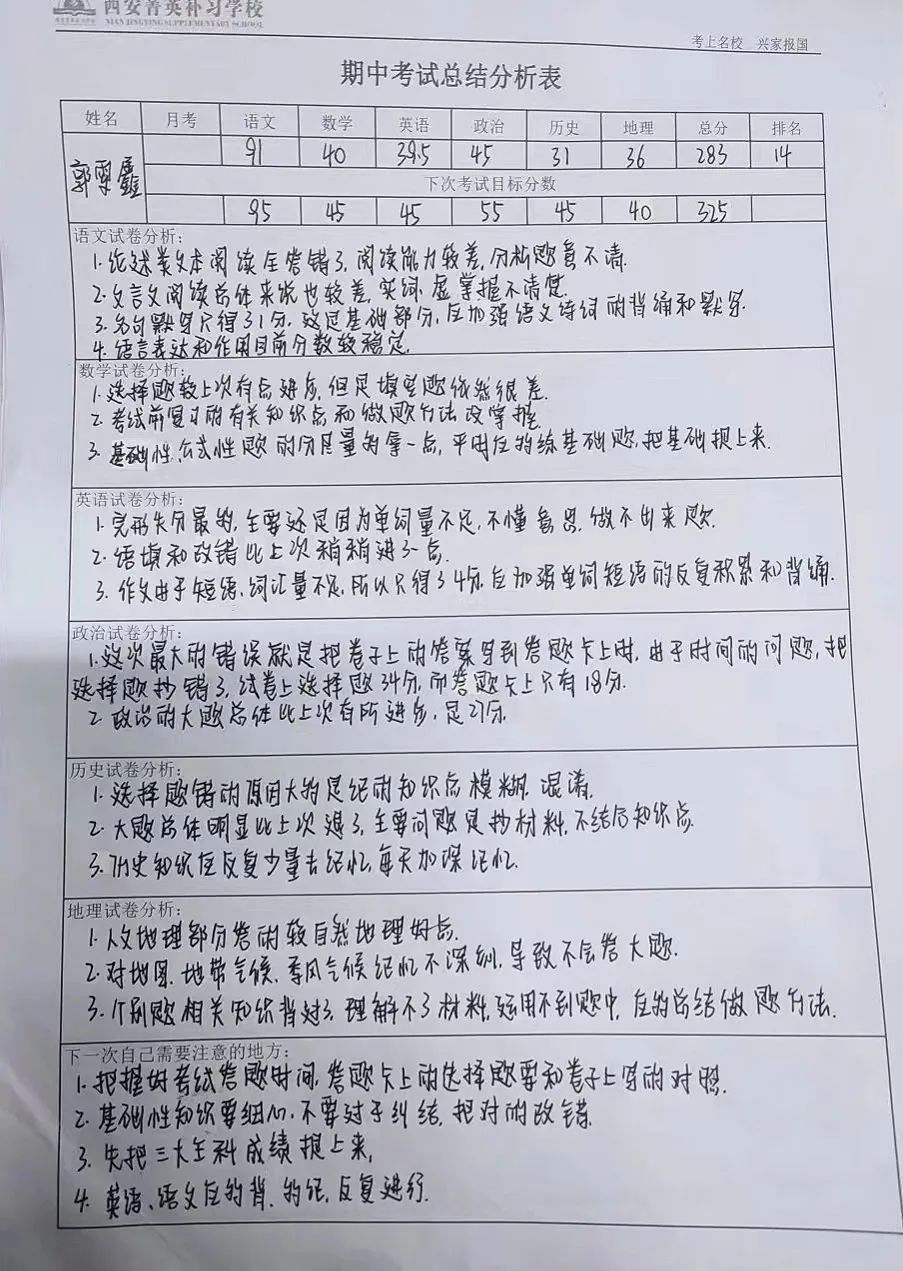 西安菁英补习学校
XIAN JINGYING SUPPLEMENTARY SCHOOL
考上名校 兴家报国
期中考试总结分析表
姓名 月考 语文 数学 英语 政治 历史 地理 总分 排名
91 40 39.5 45 31 36 283 14
郭雯鑫
下次考试目标分数
95 45 45 55 45 40 325
语文试卷分析：
1. 论述类文本阅读全答错了，阅读能力较差，分析题意不清.
2. 文言文阅读总体来说也较差，实词、虚掌握不清楚.
3. 名句默写只得了1分，这是基础部分，应加强语文诗词的背诵和默写.
4. 语言表达和作用目前分数较稳定.
数学试卷分析：
1. 选择题较上次有点进步，但是填空题依然很差.
2. 考试前复习的有关知识点和做题方法没掌握.
3. 基础性、公式性题的分尽量多拿一点，平时应多练基础题，把基础提上来.
英语试卷分析：
1. 完形失分最多，主要还是因为单词量不足，不懂意思，做不出来题.
2. 语填和改错比上次稍稍进了一点.
3. 作文由于短语、词汇量不足，所以只得了4分，应加强单词短语的反复积累和背诵.
政治试卷分析：
1. 这次最大的错误就是把卷子上的答案写到答题卡上时，由于时间的问题，把
选择题抄错了，试卷上选择题34分，而答题卡上只有18分.
2. 政治的大题总体比上次有所进步，是27分.
历史试卷分析：
1. 选择题错的原因大多是记的知识点模糊、混淆.
2. 大题总体明显比上次退了，主要问题是抄材料，不结合知识点.
3. 历史知识应反复少量去记忆，每天加深记忆.
地理试卷分析：
1. 人文地理部分答的较自然地理好点.
2. 对地图、地带气候、季风气候记忆不深刻，导致不会答大题.
3. 个别题相关知识背过了，理解不了材料，运用不到题中，应多总结做题方法.
下一次自己需要注意的地方：
1. 把握好考试答题时间，答题卡上的选择题要和卷子上写的对照.
2. 基础性知识要细心，不要过于纠结，把对的改错.
3. 先把三大主科成绩提上来，
4. 英语、语文应多背、多记，反复进行.